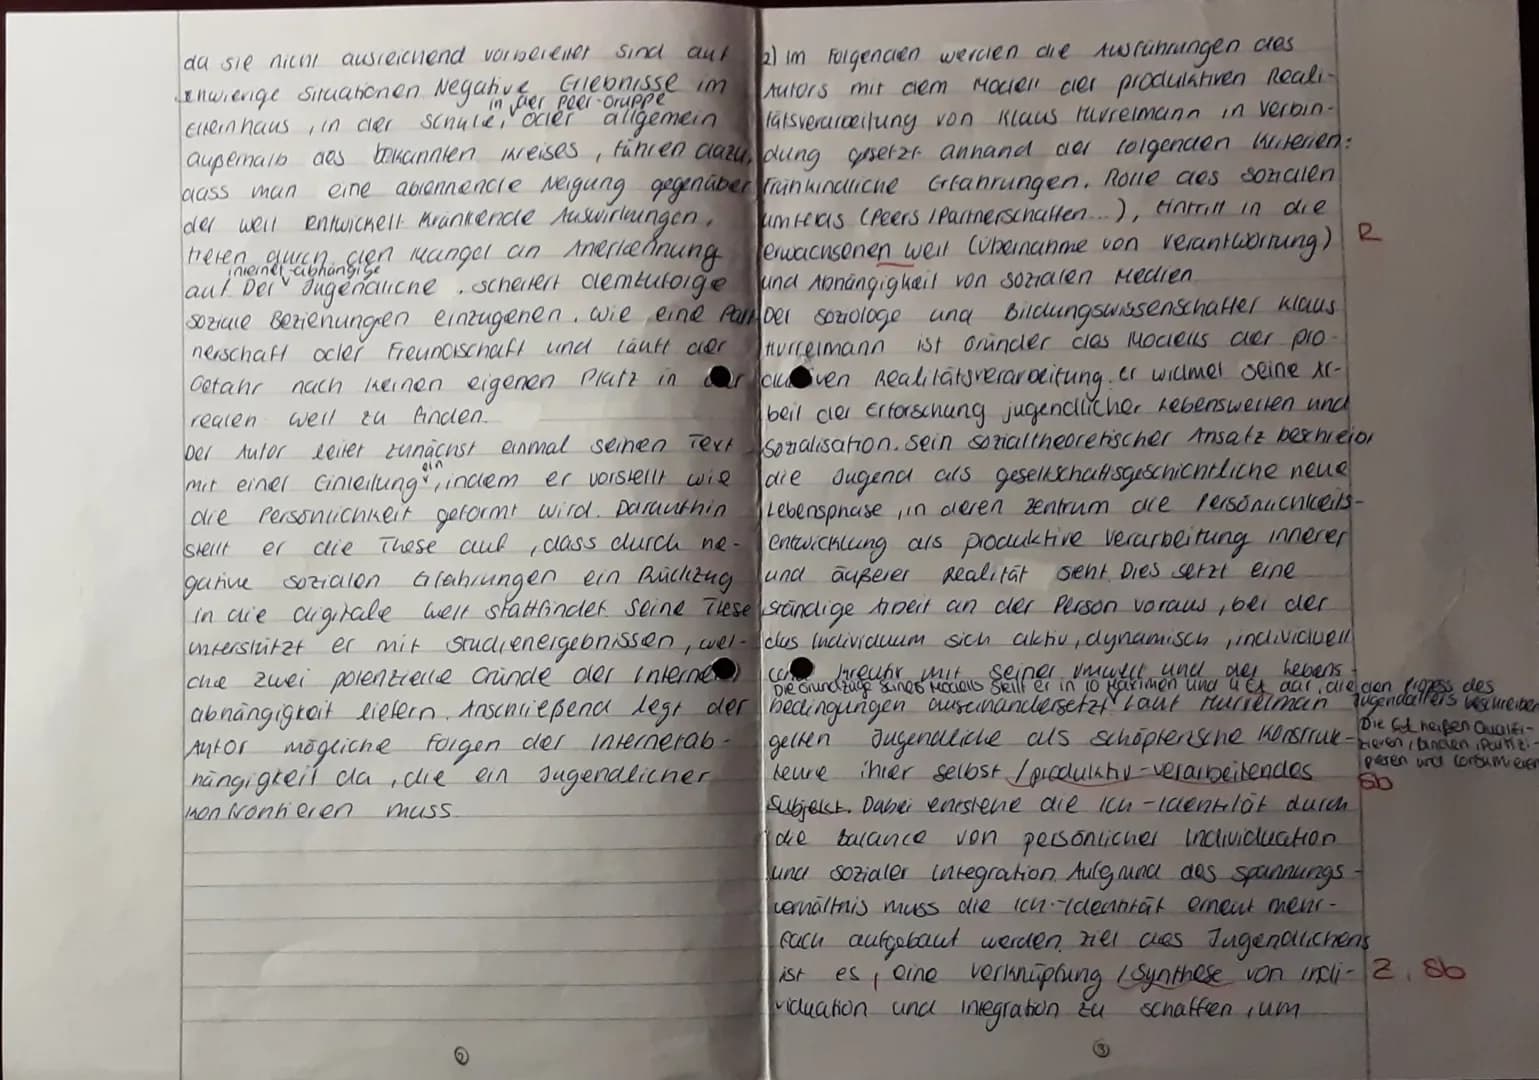 da sie nicht ausreichend vorbereitet sind auf
schwierige Situationen. Negative Erlebnisse im
in der Peer-Gruppe
Elternhaus, in der Schule, oder allgemein
außerhalb des bekannten Kreises, führen dazu,
dass man eine ablehnende Neigung gegenüber
der Welt entwickelt. Kränkende Auswirkungen,
treten durch den Mangel an Anerkennung
internet-abhängige
auf. Der Jugendliche, scheitert demzufolge
soziale Beziehungen einzugehen, wie eine Part-
nerschaft oder Freundschaft und läuft der
Gefahr nach keinen eigenen Platz in der
realen Welt zu finden.
Der Autor leitet zunächst einmal seinen Text
ein
mit einer Einleitung, indem er vorstellt wie
die Persönlichkeit geformt wird. Daraufhin
stellt er die These auf, dass durch ne-
gative sozialen Erfahrungen ein Rückzug
in die digitale Welt stattfindet. Seine These
unterstützt er mit Studienergebnissen, wel-
che zwei potenzielle Gründe der Internet
abhängigkeit liefern. Anschließend legt der
Autor mögliche Folgen der Internetab-
hängigkeit da, die ein Jugendlicher
konfrontieren muss.
②
2) Im Folgenden werden die Ausführungen des
Autors mit dem Modell der produktiven Reali-
tätsverarbeitung von Klaus Hurrelmann in Verbin-
dung gesetzt anhand der folgenden Kriterien:
Frühkindliche Erfahrungen, Rolle des sozialen
Umfelds (Peers/Partnerschaften...), Eintritt in die
erwachsenen Welt (Übernahme von Verantwortung) R
und Abhängigkeit von sozialen Medien
Der Soziologe und Bildungswissenschafter Klaus
Hurrelmann ist Gründer des Modells der pro-
duktiven Realitätsverarbeitung. Er widmet seine Ar-
beit der Erforschung jugendlicher Lebenswelten und
Sozialisation. Sein sozialtheoretischer Ansatz beschreibt
die Jugend als gesellschaftsgeschichtliche neue
Lebensphase, in deren Zentrum die Persönlichkeits-
entwicklung als produktive Verarbeitung innerer
und äußerer Realität seht. Dies setzt eine
ständige Arbeit an der Person voraus, bei der
das Individuum sich aktiv, dynamisch, individuell
kreativ mit seiner Umwelt und den Lebens-
Die Grundzüge seines Modells stellt er in 10 Maximen und 4 EA dar, die den Prozess des
bedingungen auseinandersetzt. Laut Hurrelman Jugendalters beschreiben
gelten Jugendliche als schöpferische Konstruk- Die EA heißen Qualifi-
zieren, binden, Partizi-
teure ihrer selbst / produktiv-verarbeitendes pieren und konsumieren
Sb
Subjekt. Dabei enstehe die Ich-Identität durch
die Balance von persönlicher Individuation
und sozialer Integration. Aufgrund des Spannungs-
verhältnis muss die Ich-Identität erneut mehr-
fach aufgebaut werden. Ziel des Jugendlichens
ist es, eine Verknüpfung / Synthese von Indi- Z, Sb
viduation und Integration zu schaffen, um
③